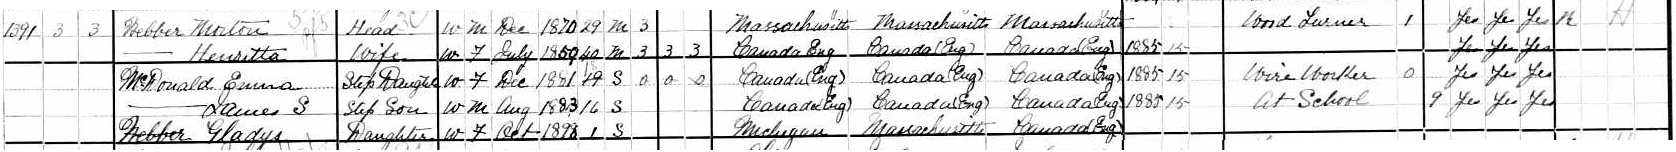 1391 3 3 Webber Morton Head W M Dec 1870 29 M 3 Massachusetts Massachusetts Massachusetts Wood Turner 1 Yes Yes Yes R H
—— Henritta Wife W F July 1859 40 M 3 3 3 Canada Eng Canada (Eng) Canada (Eng) 1885 15 Yes Yes Yes
McDonald Emma Step Daughter W F Dec 1881 19 S 0 0 0 Canada (Eng) Canada (Eng) Canada (Eng) 1885 15 Wire Worker 0 Yes Yes Yes
—— James S Step Son W M Aug 1883 16 S Canada (Eng) Canada (Eng) Canada (Eng) 1885 15 At School 9 Yes Yes Yes
Webber Gladys Daughter W F Oct 1898 1 S Michigan Massachusetts Canada (Eng)